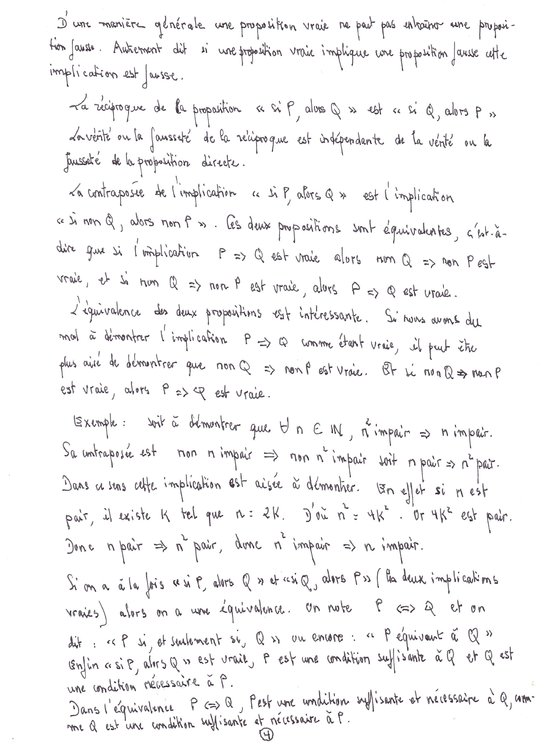 D'une manière générale une proposition vraie ne peut pas entraîner une proposi-
tion fausse. Autrement dit si une proposition vraie implique une proposition fausse cette
implication est fausse.
La réciproque de la proposition « si P, alors Q » est « si Q, alors P »
La vérité ou la fausseté de la réciproque est indépendante de la vérité ou la
fausseté de la proposition directe.
La contraposée de l'implication « si P, alors Q » est l'implication
« si non Q, alors non P ». Ces deux propositions sont équivalentes, c'est-à-
dire que si l'implication P => Q est vraie alors non Q => non P est
vraie, et si non Q => non P est vraie, alors P => Q est vraie.
L'équivalence des deux propositions est intéressante. Si nous avons du
mal à démontrer l'implication P => Q comme étant vraie, il peut être
plus aisé de démontrer que non Q => non P est vraie. Et si non Q => non P
est vraie, alors P => Q est vraie.
Exemple : soit à démontrer que ∀ n ∈ IN, n² impair => n impair.
Sa contraposée est non n impair => non n² impair soit n pair => n² pair.
Dans ce sens cette implication est aisée à démontrer. En effet si n est
pair, il existe K tel que n = 2K. D'où n² = 4K². Or 4K² est pair.
Donc n pair => n² pair, donc n² impair => n impair.
Si on a à la fois « si P, alors Q » et « si Q, alors P » (les deux implications
vraies) alors on a une équivalence. On note P <=> Q et on
dit : « P si, et seulement si, Q » ou encore : « P équivaut à Q »
Enfin « si P, alors Q » est vraie, P est une condition suffisante à Q et Q est
une condition nécessaire à P.
Dans l'équivalence P <=> Q, P est une condition suffisante et nécessaire à Q, com-
me Q est une condition suffisante et nécessaire à P.
4